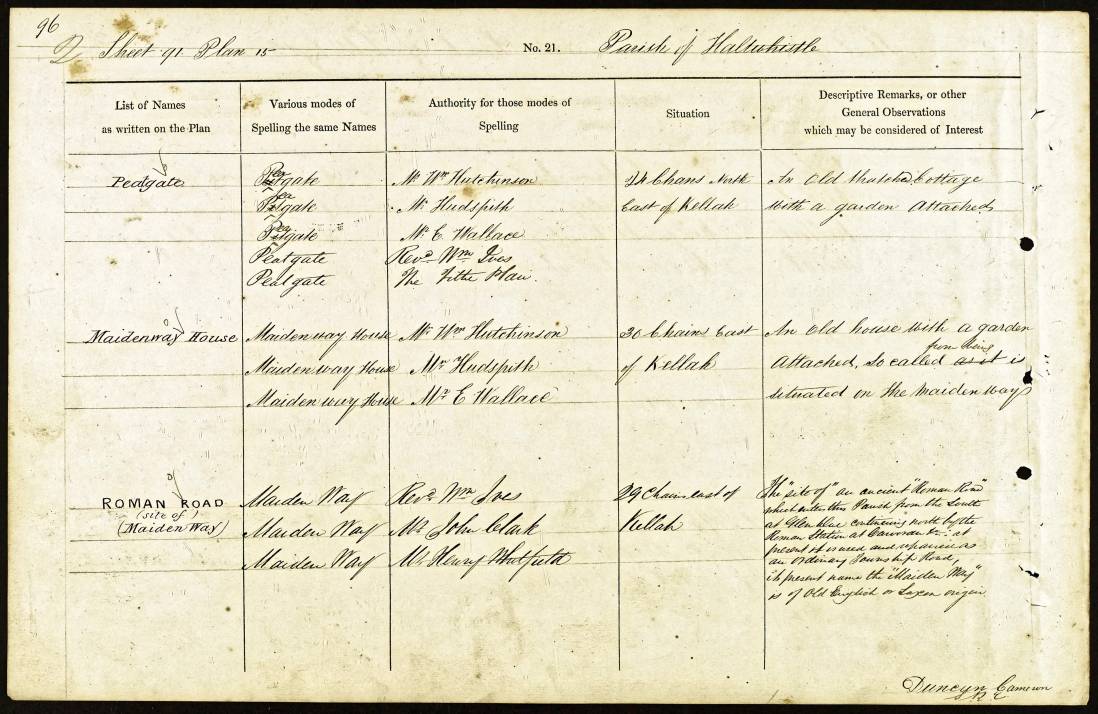 96
Sheet 91 Plan 15 No. 21. Parish of Haltwhistle
List of Names
as written on the Plan
Various modes of
Spelling the same Names
Authority for those modes of
Spelling
Situation
Descriptive Remarks, or other
General Observations
which may be considered of Interest
Peatgate
Peatgate Mr Wm Hutchinson 24 Chans North An Old thatched Cottage
Peatgate Mr Hudspith East of Kellah with a garden Attached
Peatgate Mr E. Wallace
Peatgate Revd Wm Ives
Peatgate The Tithe Plan
Maidenway House Maidenway House Mr Wm Hutchinson 30 Chains East An old house with a garden
from being
Maidenway House Mr Hudspith of Kellah Attached, So called as it is
Maidenway House Mr E Wallace situated on the Maidenway
ROMAN ROAD
(site of)
(Maiden Way)
Maiden Way Revd Wm Ives 29 Chains east of
Maiden Way Mr John Clark Kellah
Maiden Way Mr Henry Whitfield
The "site of" an ancient "Roman Road"
which enters this Parish from the South
at Glenhlue continuing north by the
Roman Station at Carvoran &c. at
present it is used and repaired as
an ordinary Township Road,
its present name the "Maiden Way"
is of Old English or Saxon origin
Duncan Cameron
R.E